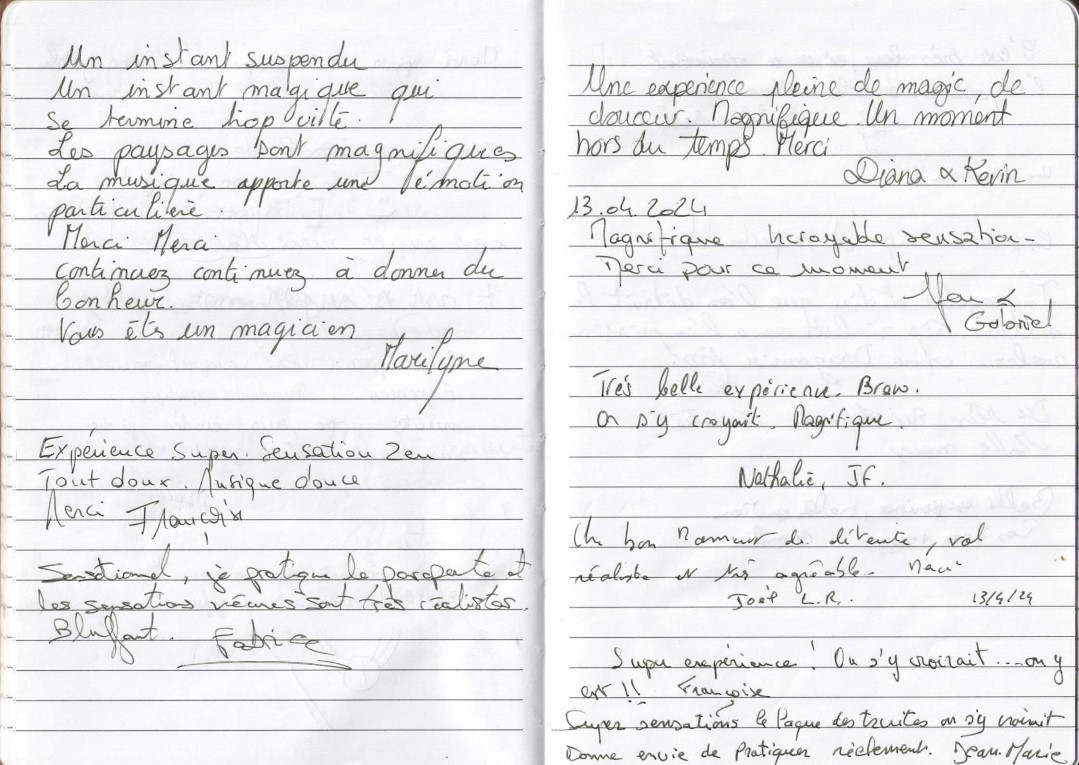 Un instant suspendu
Un instant magique qui
se termine trop vitte.
Les paysages sont magnifiques
La musique apporte une émotion
particulière.
Merci Merci
continuez continuez à donner du
bonheur.
Vous êts un magicien
Marilyne
Expérience super. Sensation Zen
Tout doux. Musique douce
Merci Françoise
Sensationnel, je pratique le parapente et
les sensations vécues sont très réalistes.
Bluffant. Fabrice
Une expérience pleine de magie, de
douceur. Magnifique Un moment
hors du temps. Merci
Diana & Kevin
13.04.2024
Magnifique Incroyable sensation-
Merci pour ce moment
&
Gabriel
Très belle expérience. Bravo.
On s'y croyait. Magnifique.
Nathalie, JF.
Un bon moment de détente, vol
réaliste et très agréable. Merci
Joël L.R. 13/4/24
Super expérience ! On s'y croirait ... on y
est !! Françoise
Super sensations le Paque des truites on s'y croirait
Donne envie de Pratiquer réellement. Jean-Marie